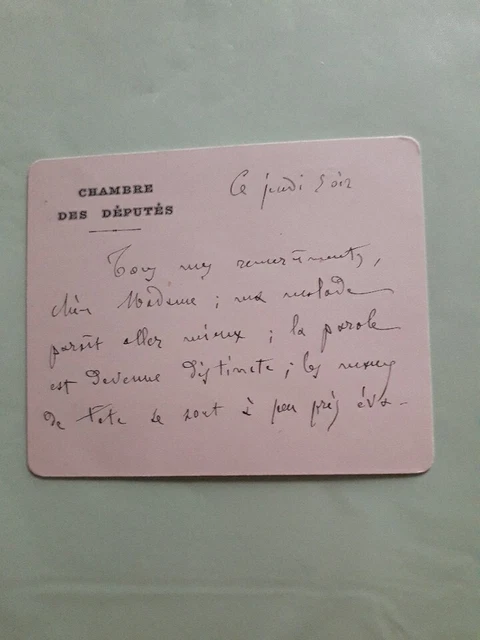 CHAMBRE
DES DÉPUTÉS
Ce jeudi soir
Tous mes remerciments,
chère Madame ; ma malade
paraît aller mieux ; la parole
est devenue distincte ; les maux
de tête se sont à peu près éva-